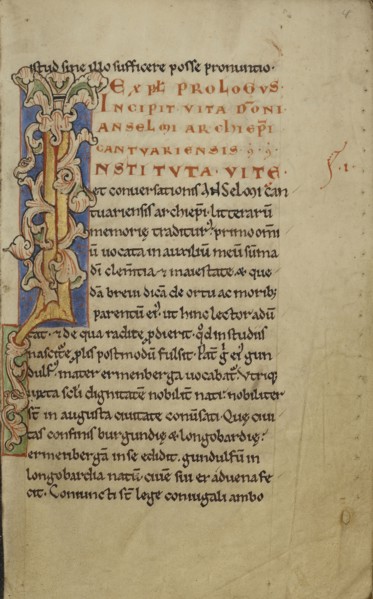 istud sine illo sufficere posse pronuntio.
Expl prologus.
Incipit vita doni
Anselmi archiepi
Cantuariensis
Instituta vite
et conversationis Anselmi Can
tuariensis archiepi litterarū
memorię traditur, primo omniū
vocata in auxiliū meū sūma
di clemētia & maiestate, que
dam brevi dicā de ortu ac morib;
parentū ei, ut hinc lector adū
tat, & de qua radice pdierit, qd in studiis
nascitę plis postmodū fulsit. Pat g ei gun
dulf, mater ermenberga vocabat. Utriq;
iuxta scli dignitatē nobilit nati, nobiliter
st in augusta civitate conūsati. Que civi
tas confinis burgundię & longobardię,
ermenbergā in se edidit, gundulfū in
longobardia natū, civē sui ex advena fe
cit. Coniuncti st lege coniugali ambo